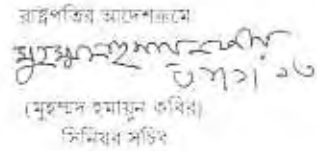 রাষ্ট্রপতির আদেশক্রমে
(মুহম্মদ হুমায়ুন কবির)
সিনিয়র সচিব